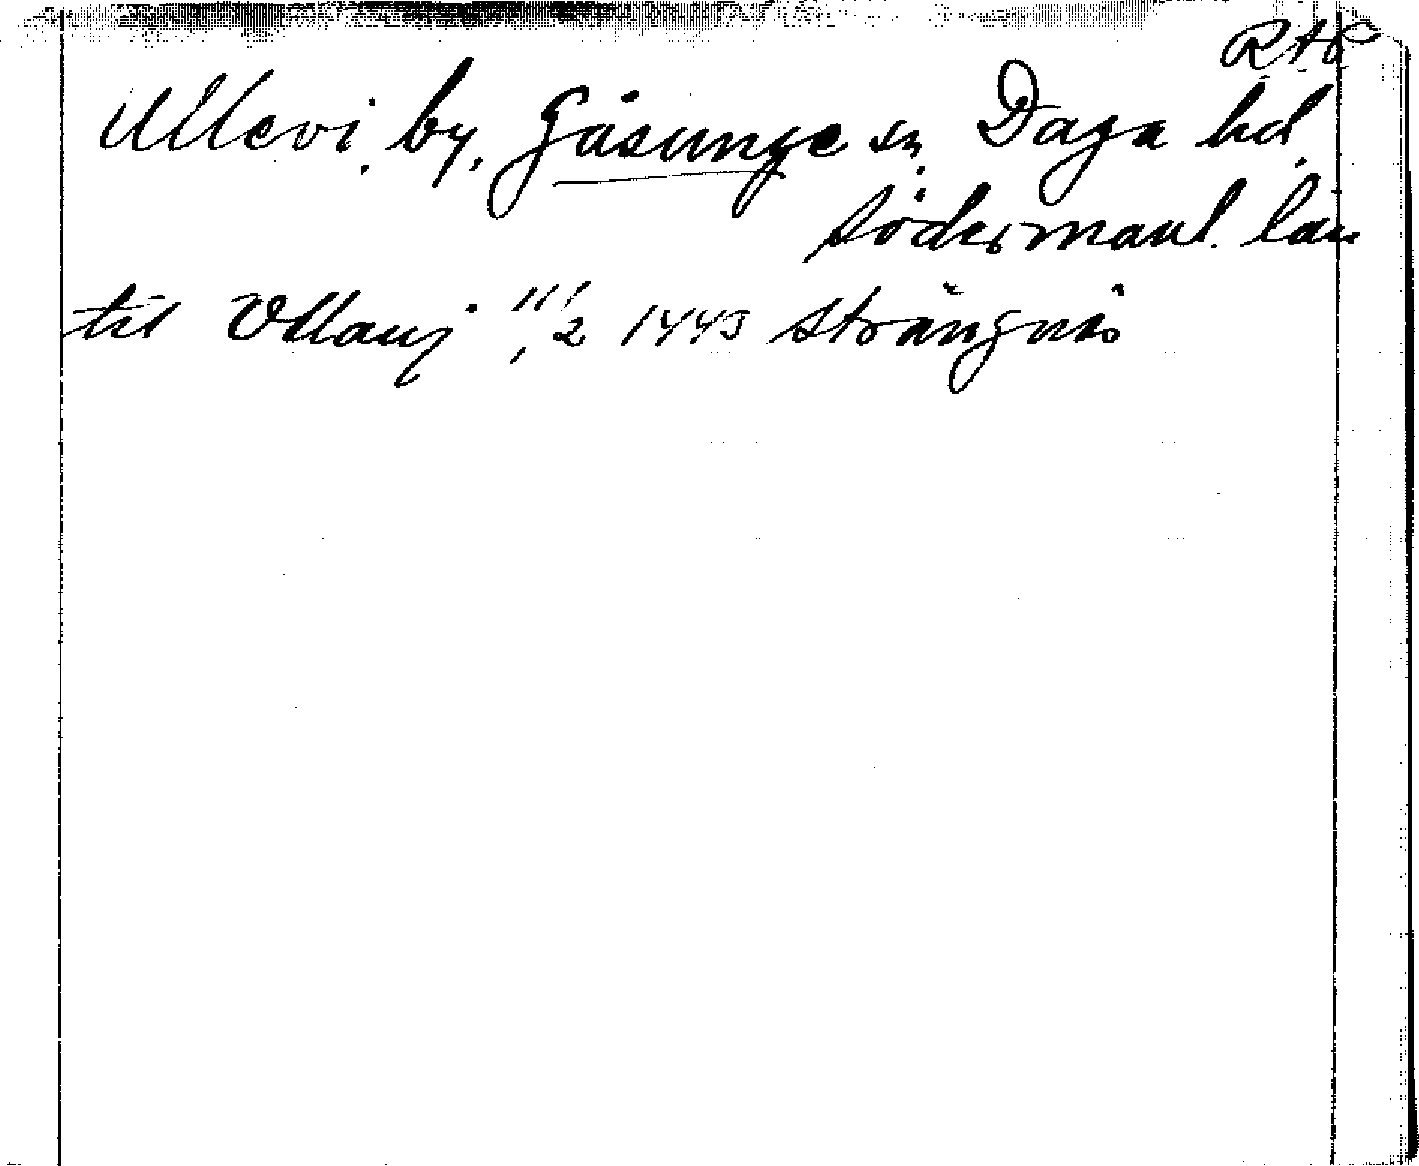 RAP
Ullevi by, Gåsinge sn Daga hd.
Södermanl. län
til Vllauj 11/2 1443 Strängnäs